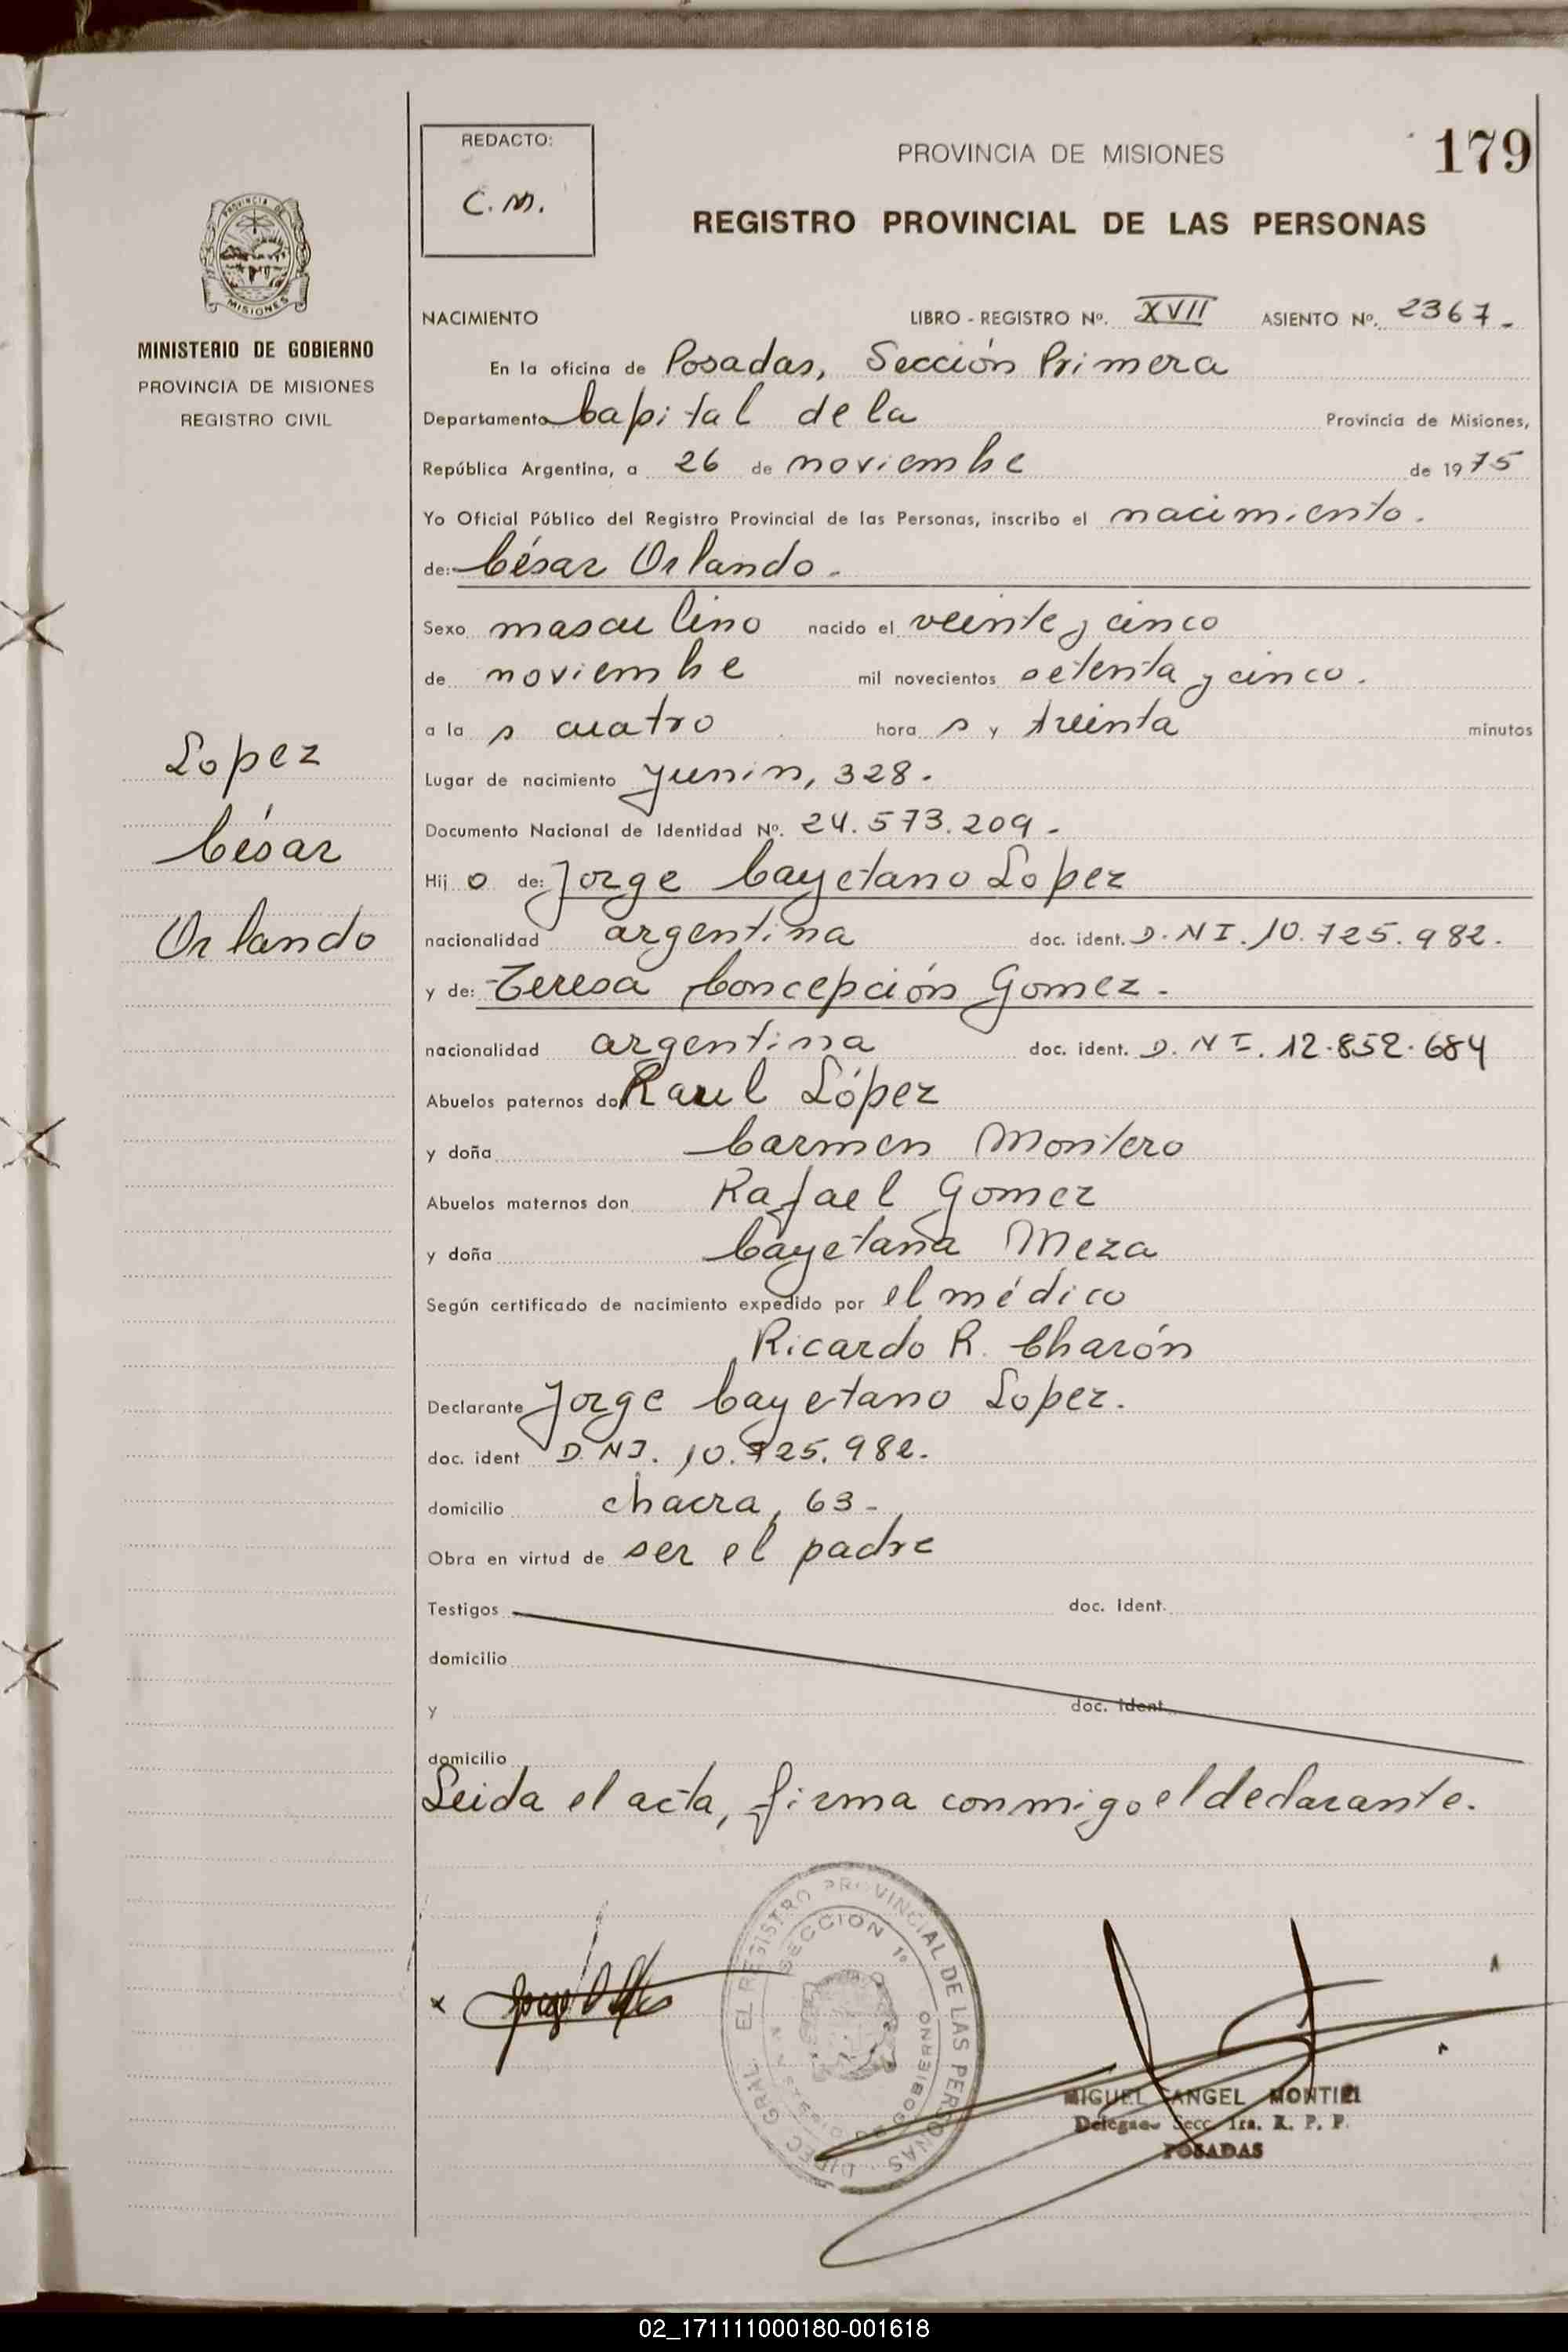 179
REDACTO:
C.M.
PROVINCIA DE MISIONES
REGISTRO PROVINCIAL DE LAS PERSONAS
PROVINCIA DE
MISIONES
MINISTERIO DE GOBIERNO
PROVINCIA DE MISIONES
REGISTRO CIVIL
Lopez
César
Orlando
NACIMIENTO LIBRO - REGISTRO Nº. XVII ASIENTO Nº. 2367-
En la oficina de Posadas, Sección Primera
Departamento Capital de la Provincia de Misiones,
República Argentina, a 26 de noviembre de 1975
Yo Oficial Público del Registro Provincial de las Personas, inscribo el nacimiento.
de: César Orlando.
Sexo masculino nacido el veinte y cinco
de noviembre mil novecientos setenta y cinco.
a la s cuatro hora s y treinta minutos
Lugar de nacimiento Junin, 328.
Documento Nacional de Identidad Nº. 24.573.209-
Hij o de: Jorge Cayetano Lopez
nacionalidad argentina doc. ident. D.N I. 10.725.982.
y de: Teresa Concepción Gomez.
nacionalidad argentina doc. ident. D. N I. 12.852.684
Abuelos paternos don Raul López
y doña Carmen Montero
Abuelos maternos don Rafael Gomez
y doña Cayetana Meza
Según certificado de nacimiento expedido por el médico
Ricardo R. Charón
Declarante Jorge Cayetano Lopez.
doc. ident D.NI. 10.725.982.
domicilio chacra, 63-
Obra en virtud de ser el padre
Testigos doc. ident.
domicilio
y doc. ident.
domicilio
Leida el acta, firma conmigo el declarante.
DIREC GRAL. EL REGISTRO PROVINCIAL DE LAS PERSONAS
SECCION 1º
GOBIERNO
MIGUEL ANGEL MONTIEL
Delegado Secc. 1ra. R. P. P.
POSADAS
02_171111000180-001618